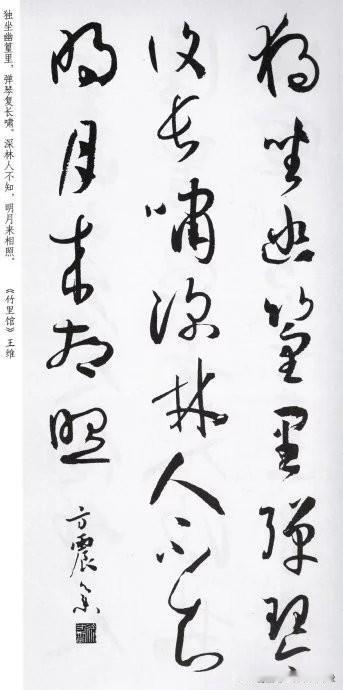 獨坐幽篁里彈琴
復長嘯深林人不知
明月来相照
方震
独坐幽篁里，弹琴复长啸。深林人不知，明月来相照。 《竹里馆》王维